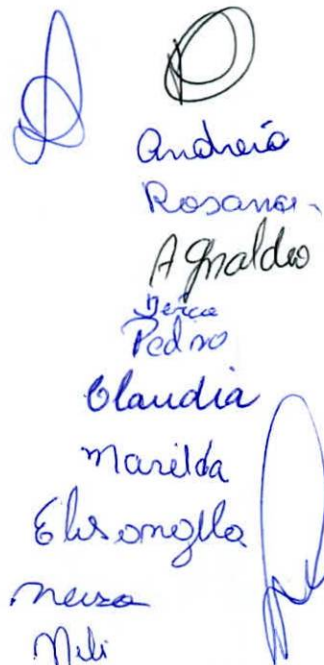 Andreia
Rosana
Agnaldo
Pedro
Claudia
Marilda
Elisangella
Neuza
Meli